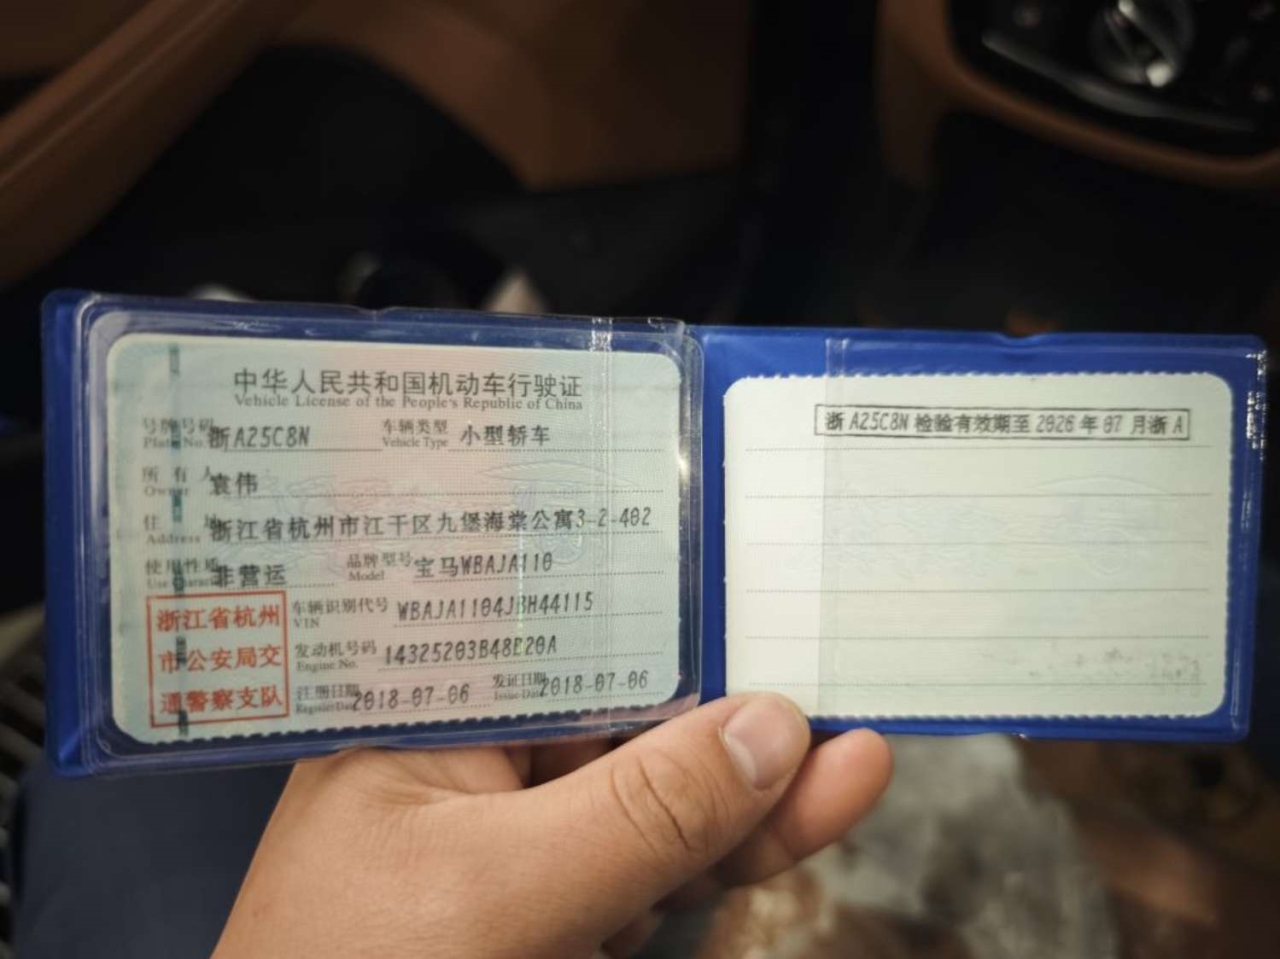 中华人民共和国机动车行驶证
Vehicle License of the People's Republic of China
号牌号码 浙A25C8N 车辆类型 小型轿车
Plate No. Vehicle Type
所有人 袁伟
Owner
住址 浙江省杭州市江干区九堡海棠公寓3-2-402
Address
使用性质 非营运 品牌型号 宝马WBAJA110
Use Character Model
浙江省杭州
市公安局交
通警察支队
车辆识别代号 WBAJA1104JBH44115
VIN
发动机号码 14325203B48B20A
Engine No.
注册日期 2018-07-06 发证日期 2018-07-06
Register Date Issue Date
浙A25C8N 检验有效期至 2026 年 07 月浙A